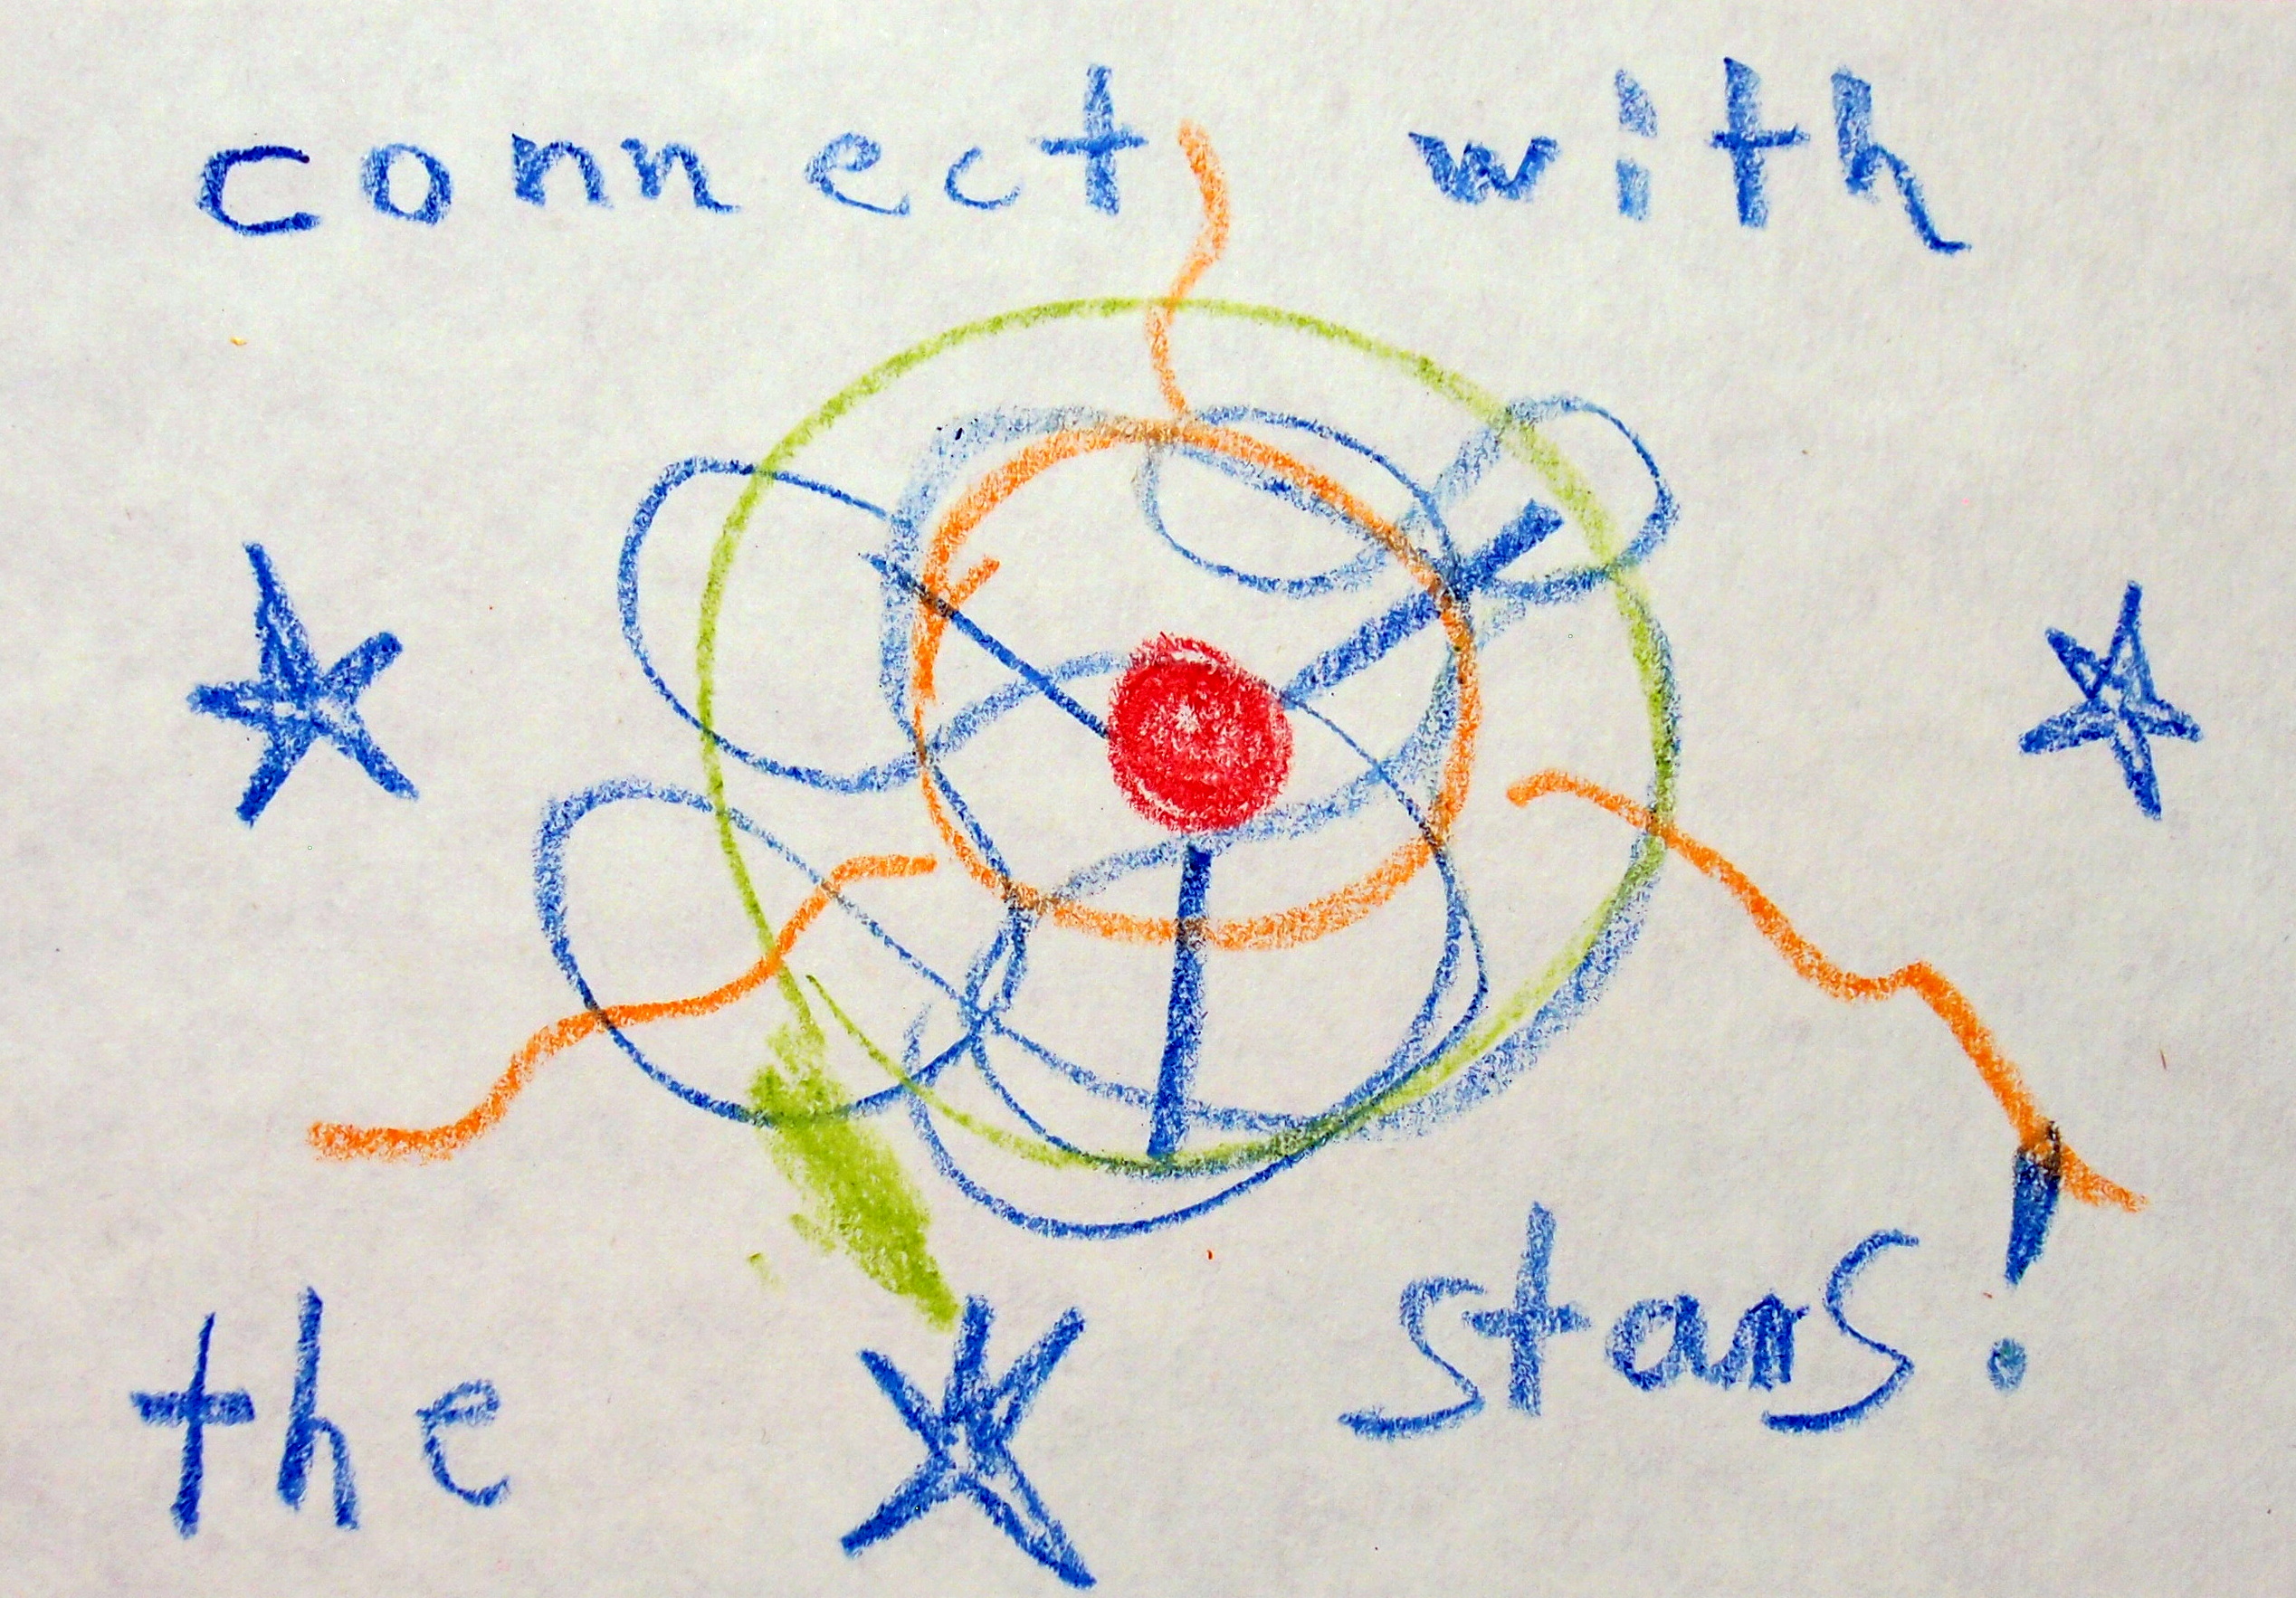 connect with
the stars!